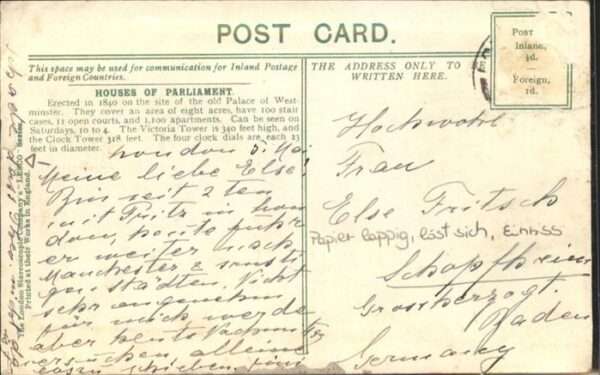 POST CARD.
This space may be used for communication for Inland Postage
and Foreign Countries.
HOUSES OF PARLIAMENT.
Erected in 1840 on the site of the old Palace of West-
minster. They cover an area of eight acres, have 100 stair
cases, 11 open courts, and 1,100 apartments. Can be seen on
Saturdays, 10 to 4. The Victoria Tower is 340 feet high, and
the Clock Tower 318 feet. The four clock dials are each 23
feet in diameter.
London 5. Mai
Meine liebe Else!
Bin seit 2 ten
mit Fritz in Lon
don, heute fuhr
er weiter nach
Manchester &
städten. Nicht
sehr angenehm
für mich, werde
aber heute Nachmittag
versuchen alleine
schieben.
The London Stereoscopic Company's "LESCO" Series.
Printed at their Works in England.
THE ADDRESS ONLY TO BE
WRITTEN HERE.
POST
Inland,
½d.
Foreign,
1d.
Hochwohl
Frau
Else Fritsch
Papier lappig, löst sich, Einriss
Schopfheim
Grossherzogt.
Baden
Germany